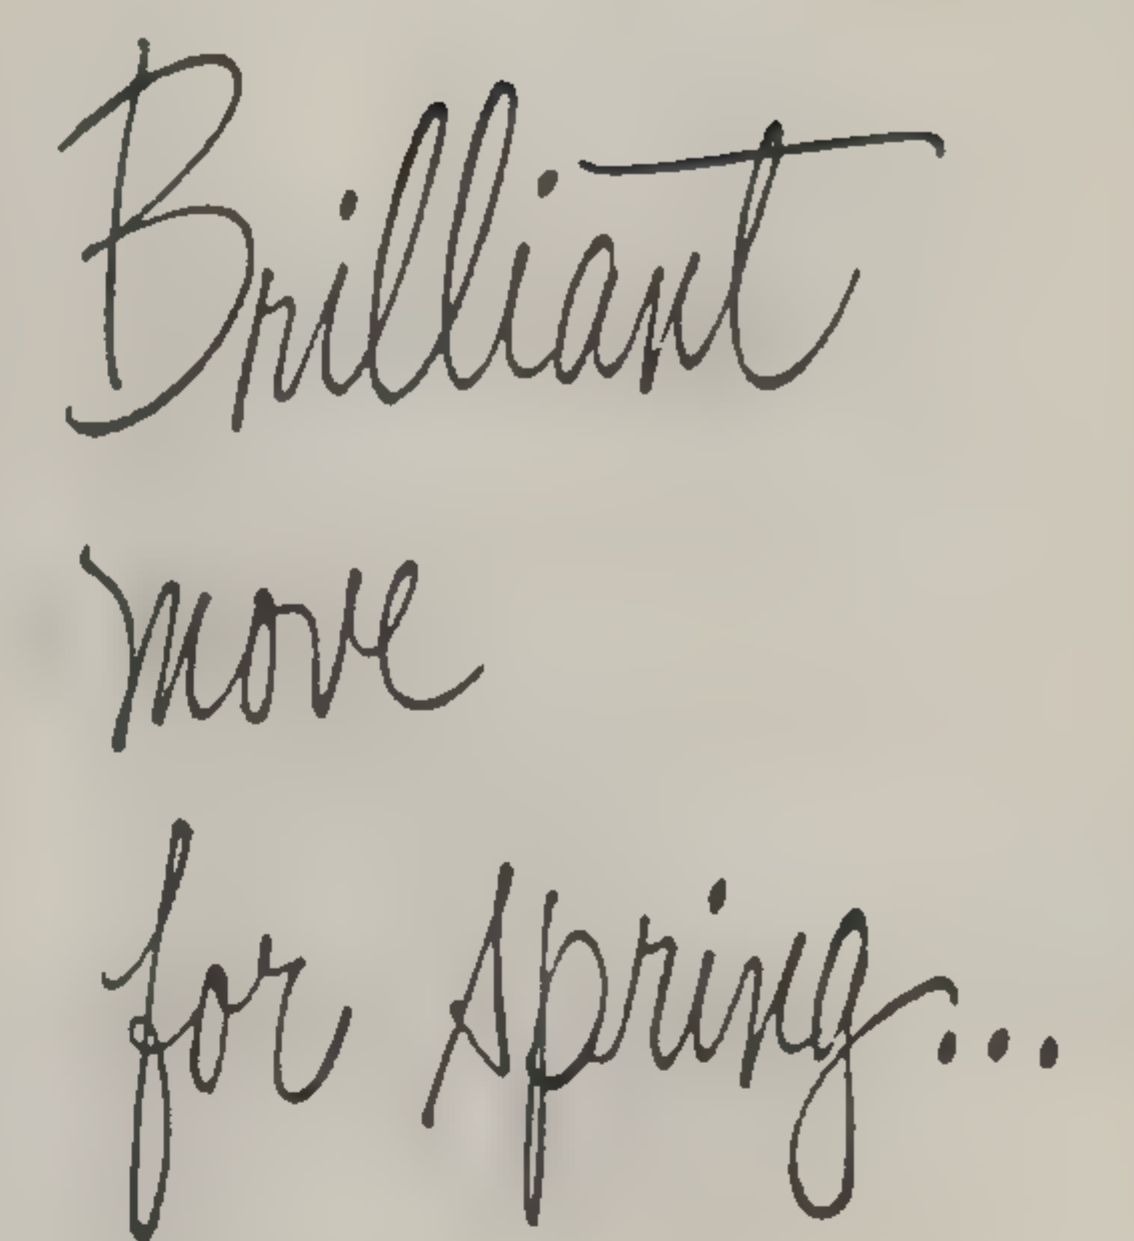 Brilliant
move
for spring...